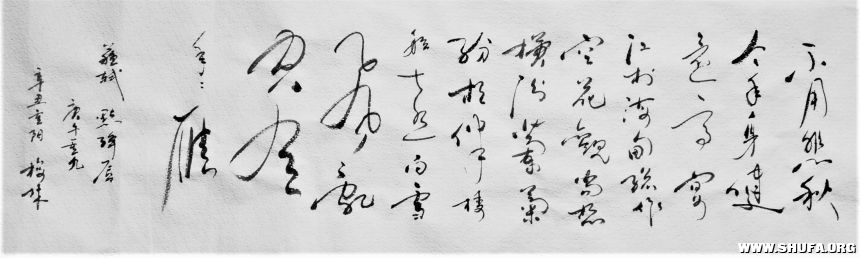 不用悲秋
今年身健
還高宴
江村海甸總作
空花觀尚想
橫汾蘭菊
紛相樓
船遠白雲
飛亂
空有
年年雁
蘇軾 點絳唇
庚午重九
辛丑重陽 梅
WWW.SHUFA.ORG